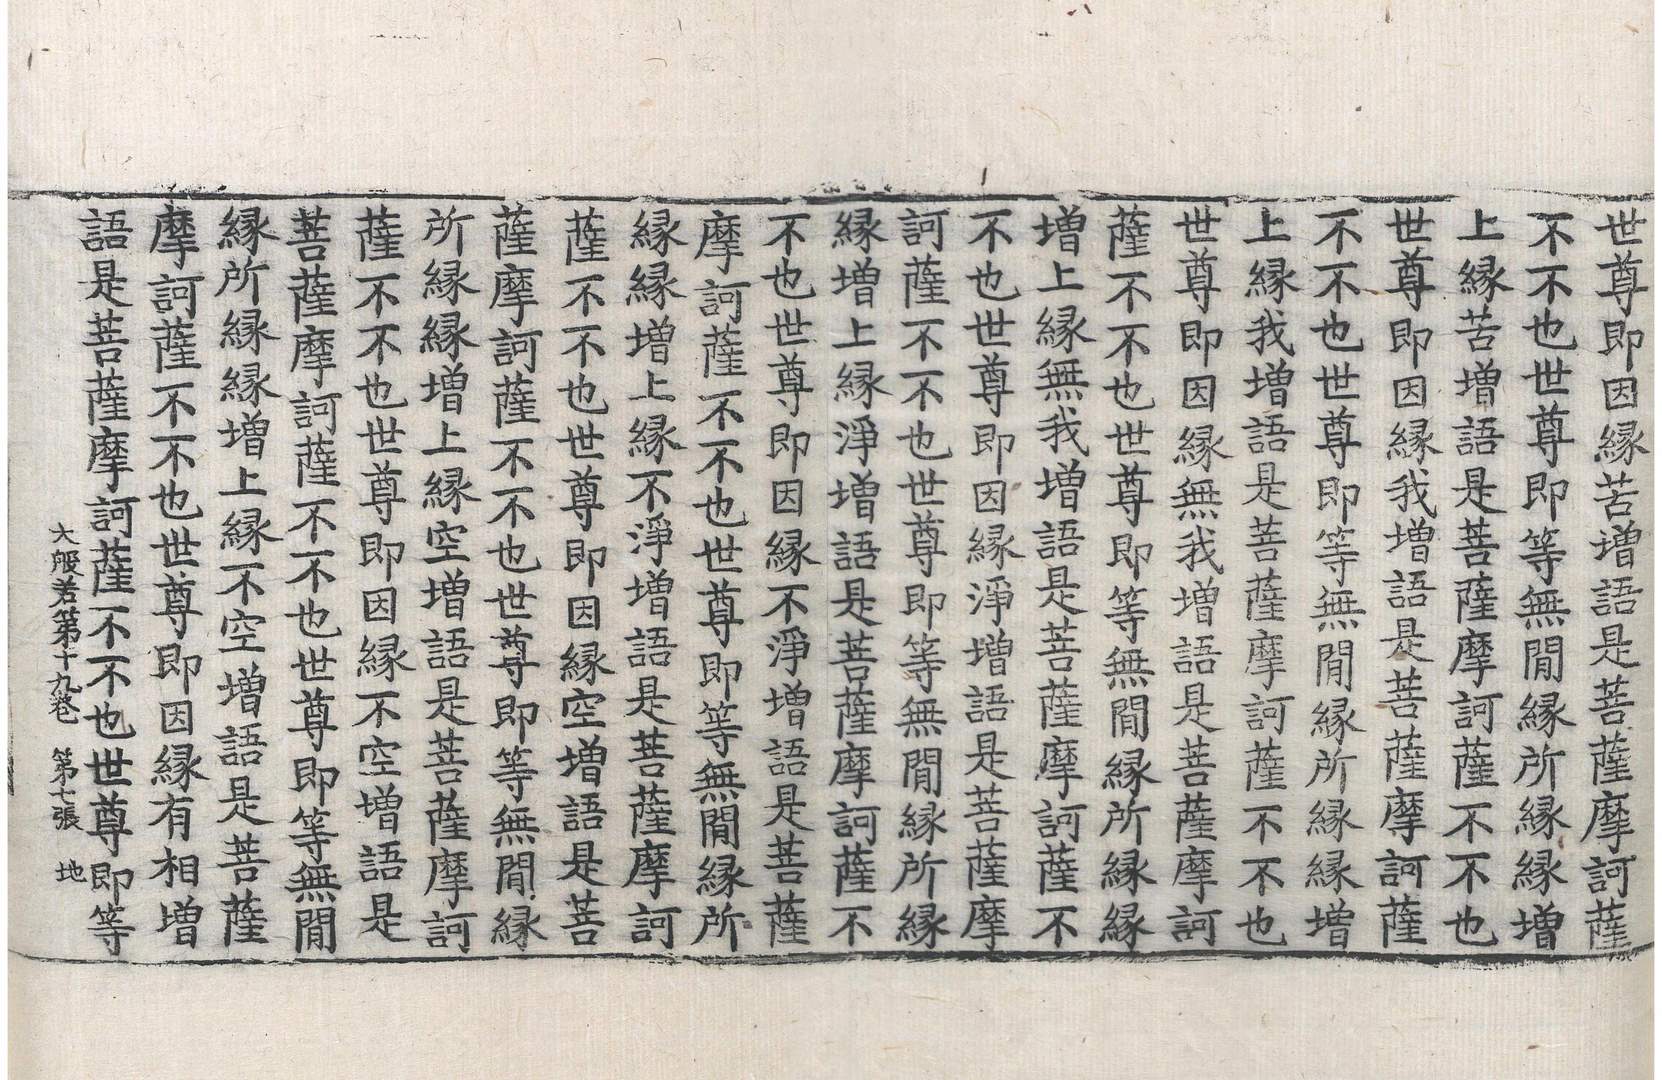 世尊即因縁苦増語是菩薩摩訶薩
不不也世尊即等無間縁所縁縁增
上縁苦増語是菩薩摩訶薩不不也
世尊即因縁我增語是菩薩摩訶薩
不不也世尊即等無間縁所縁縁增
上縁我增語是菩薩摩訶薩不不也
世尊即因縁無我增語是菩薩摩訶
薩不不也世尊即等無間縁所縁縁
增上縁無我增語是菩薩摩訶薩不
不也世尊即因縁淨增語是菩薩摩
訶薩不不也世尊即等無間縁所縁
縁增上縁淨增語是菩薩摩訶薩不
不也世尊即因縁不淨增語是菩薩
摩訶薩不不也世尊即等無間縁所
縁縁增上縁不淨增語是菩薩摩訶
薩不不也世尊即因縁空增語是菩
薩摩訶薩不不也世尊即等無間縁
所縁縁增上縁空增語是菩薩摩訶
薩不不也世尊即因縁不空增語是
菩薩摩訶薩不不也世尊即等無間
縁所縁縁增上縁不空增語是菩薩
摩訶薩不不也世尊即因縁有相增
語是菩薩摩訶薩不不也世尊即等
大般若第十九卷 第七張 地